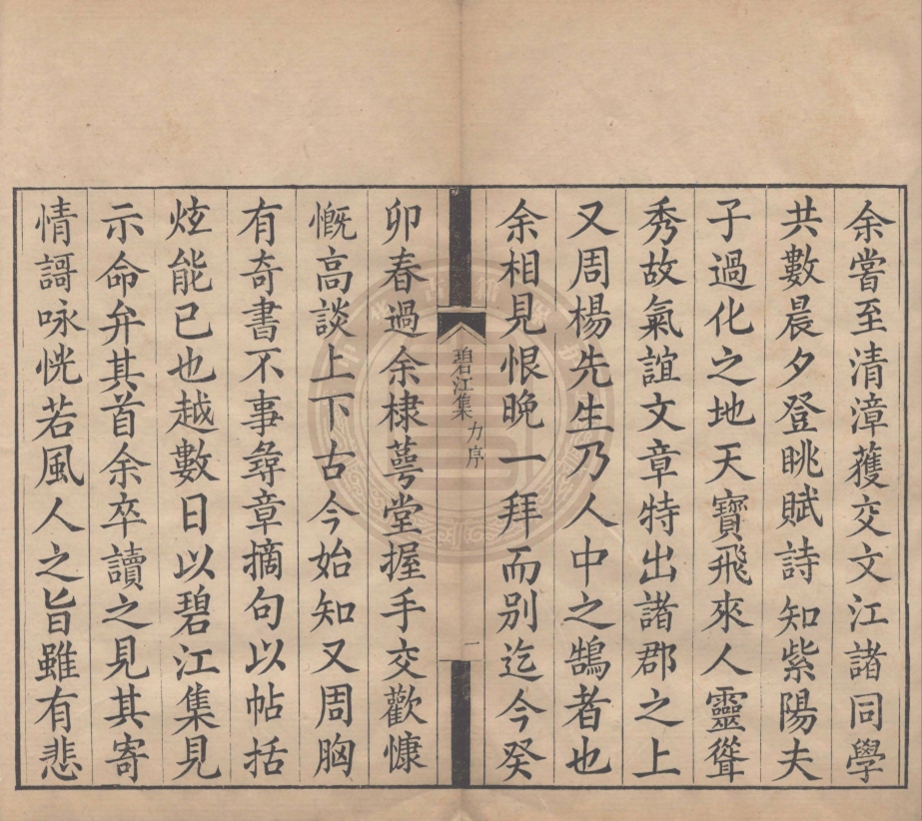 余嘗至清漳獲交文江諸同學
共數晨夕登眺賦詩知紫陽夫
子過化之地天寶飛來人靈聳
秀故氣誼文章特出諸郡之上
又周楊先生乃人中之鵠者也
余相見恨晚一拜而别迄今癸
碧江集
力序
一
卯春過余棣萼堂握手交歡慷
慨高談上下古今始知又周胸
有奇書不事尋章摘句以帖括
炫能已也越數日以碧江集見
示命弁其首余卒讀之見其寄
情謌咏恍若風人之旨雖有悲